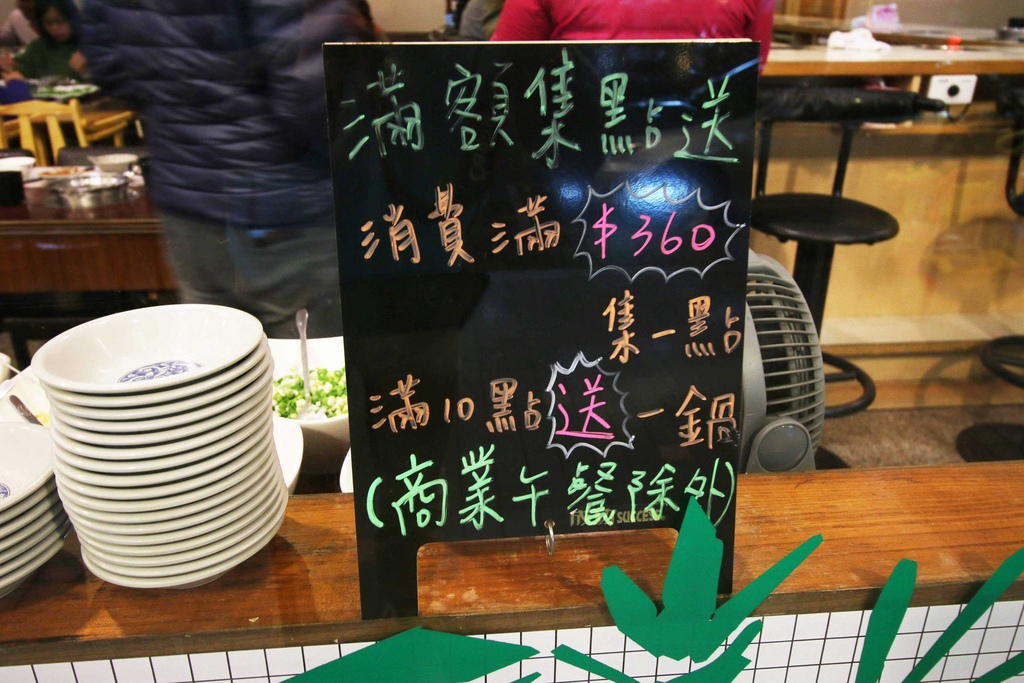 滿額集點送
消費滿 $360
集一點
滿10點送一鍋
(商業午餐除外)
SUCCESS